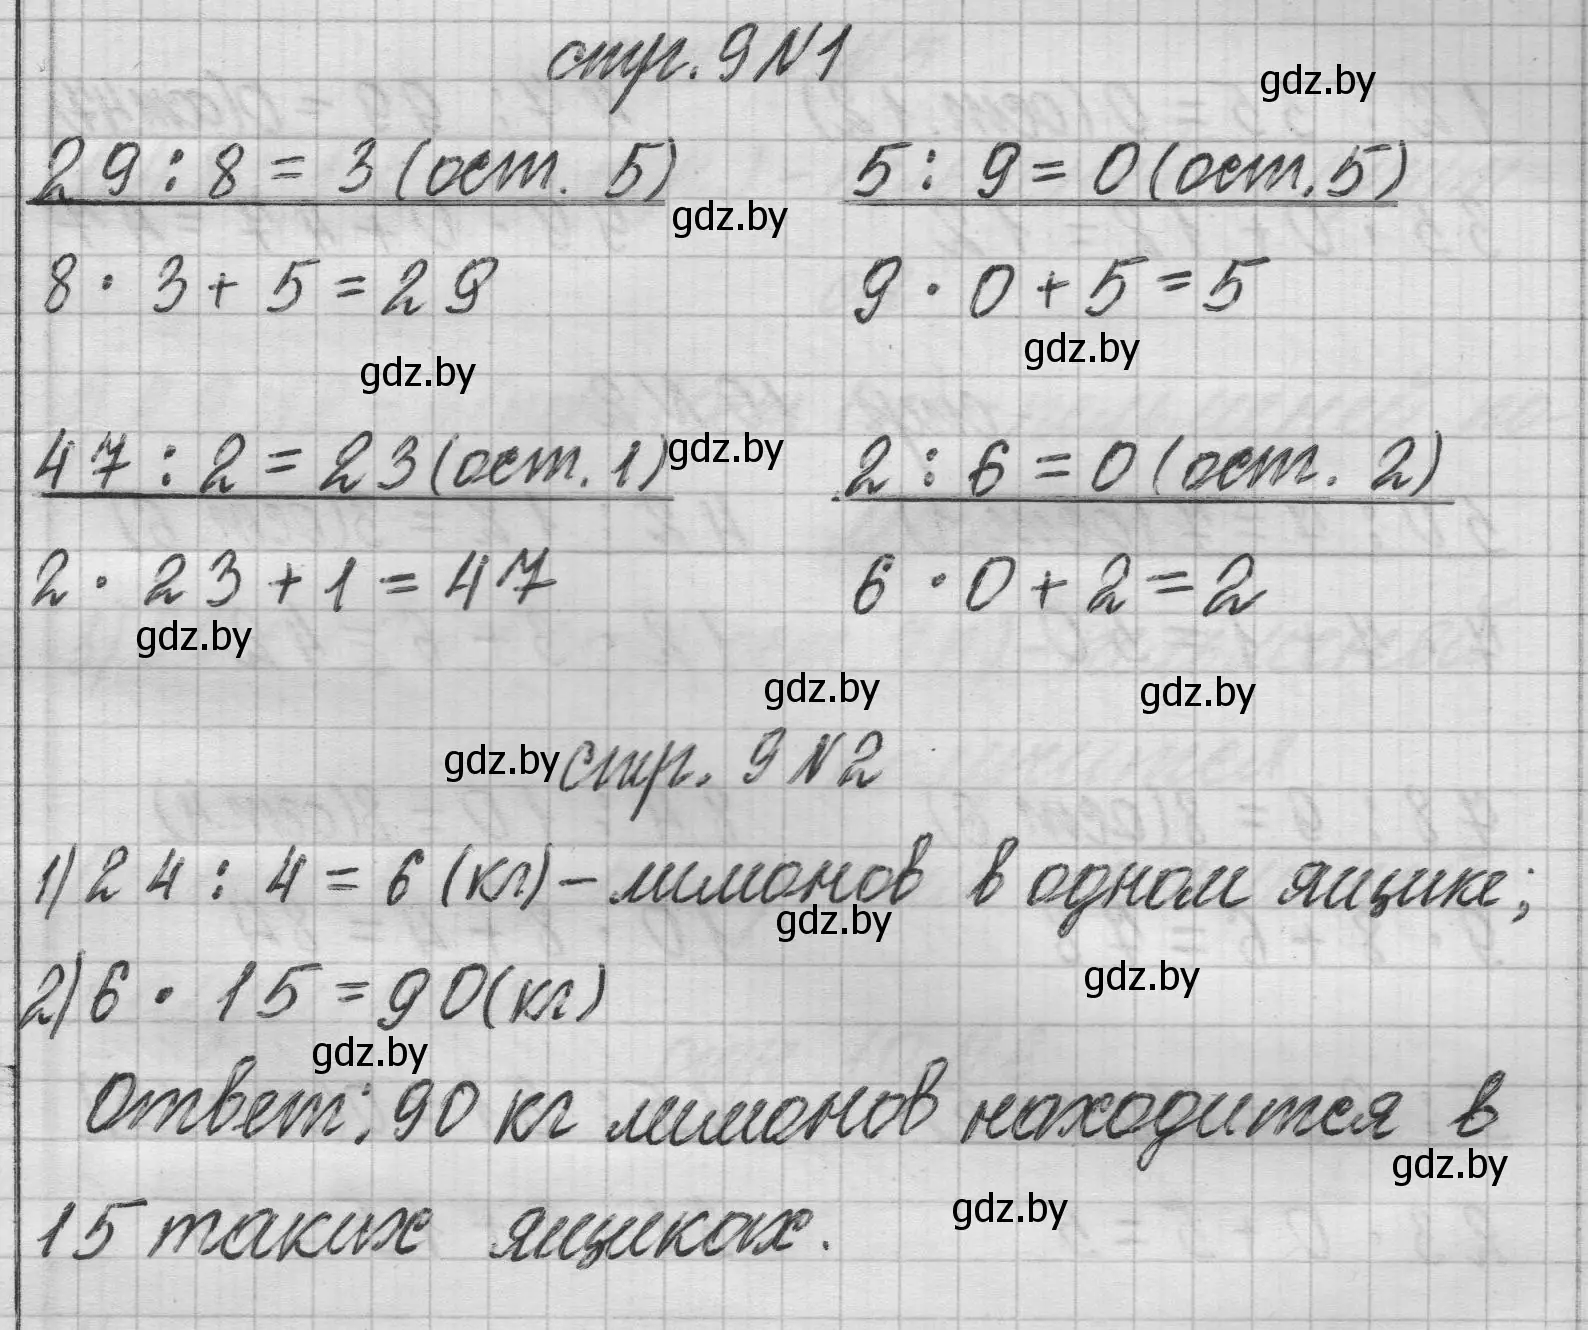 стр. 9 N 1
gdz.by
29 : 8 = 3 (ост. 5)
5 : 9 = 0 (ост. 5)
gdz.by
8 · 3 + 5 = 29
9 · 0 + 5 = 5
gdz.by
gdz.by
47 : 2 = 23 (ост. 1)
gdz.by
2 : 6 = 0 (ост. 2)
2 · 23 + 1 = 47
6 · 0 + 2 = 2
gdz.by
gdz.by
gdz.by
gdz.by
стр. 9 N 2
1) 24 : 4 = 6 (кг) – лимонов в одном ящике;
gdz.by
gdz.by
2) 6 · 15 = 90 (кг)
gdz.by
Ответ: 90 кг лимонов находится в
gdz.by
15 таких ящиках.
gdz.by